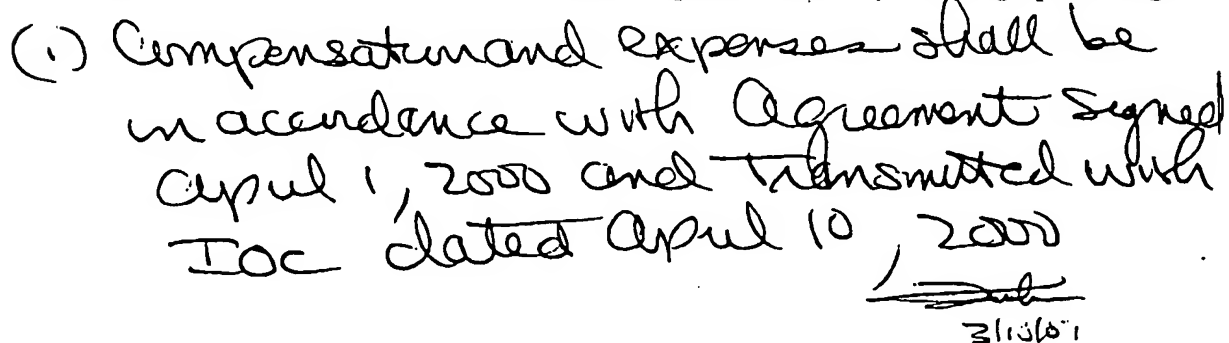 (1) Compensation and expenses shall be
in accordance with Agreement signed
April 1, 2000 and transmitted with
IOC dated April 10, 2000